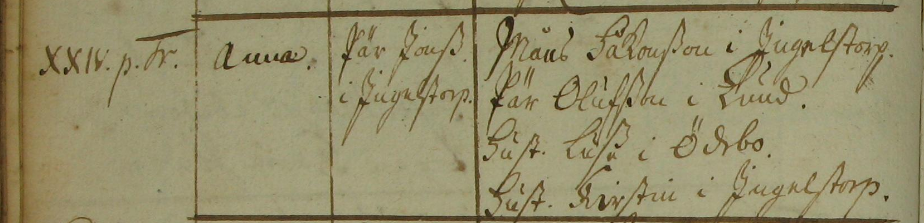 XXIV. p. Tr.
Anna.
Pär Jönß.
i Jngelstorp.
Måns Håkonßon i Jngelstorp.
Pär Olufßon i Lund.
Hust. i Ödebo.
Hust. Kirstin i Jngelstorp.